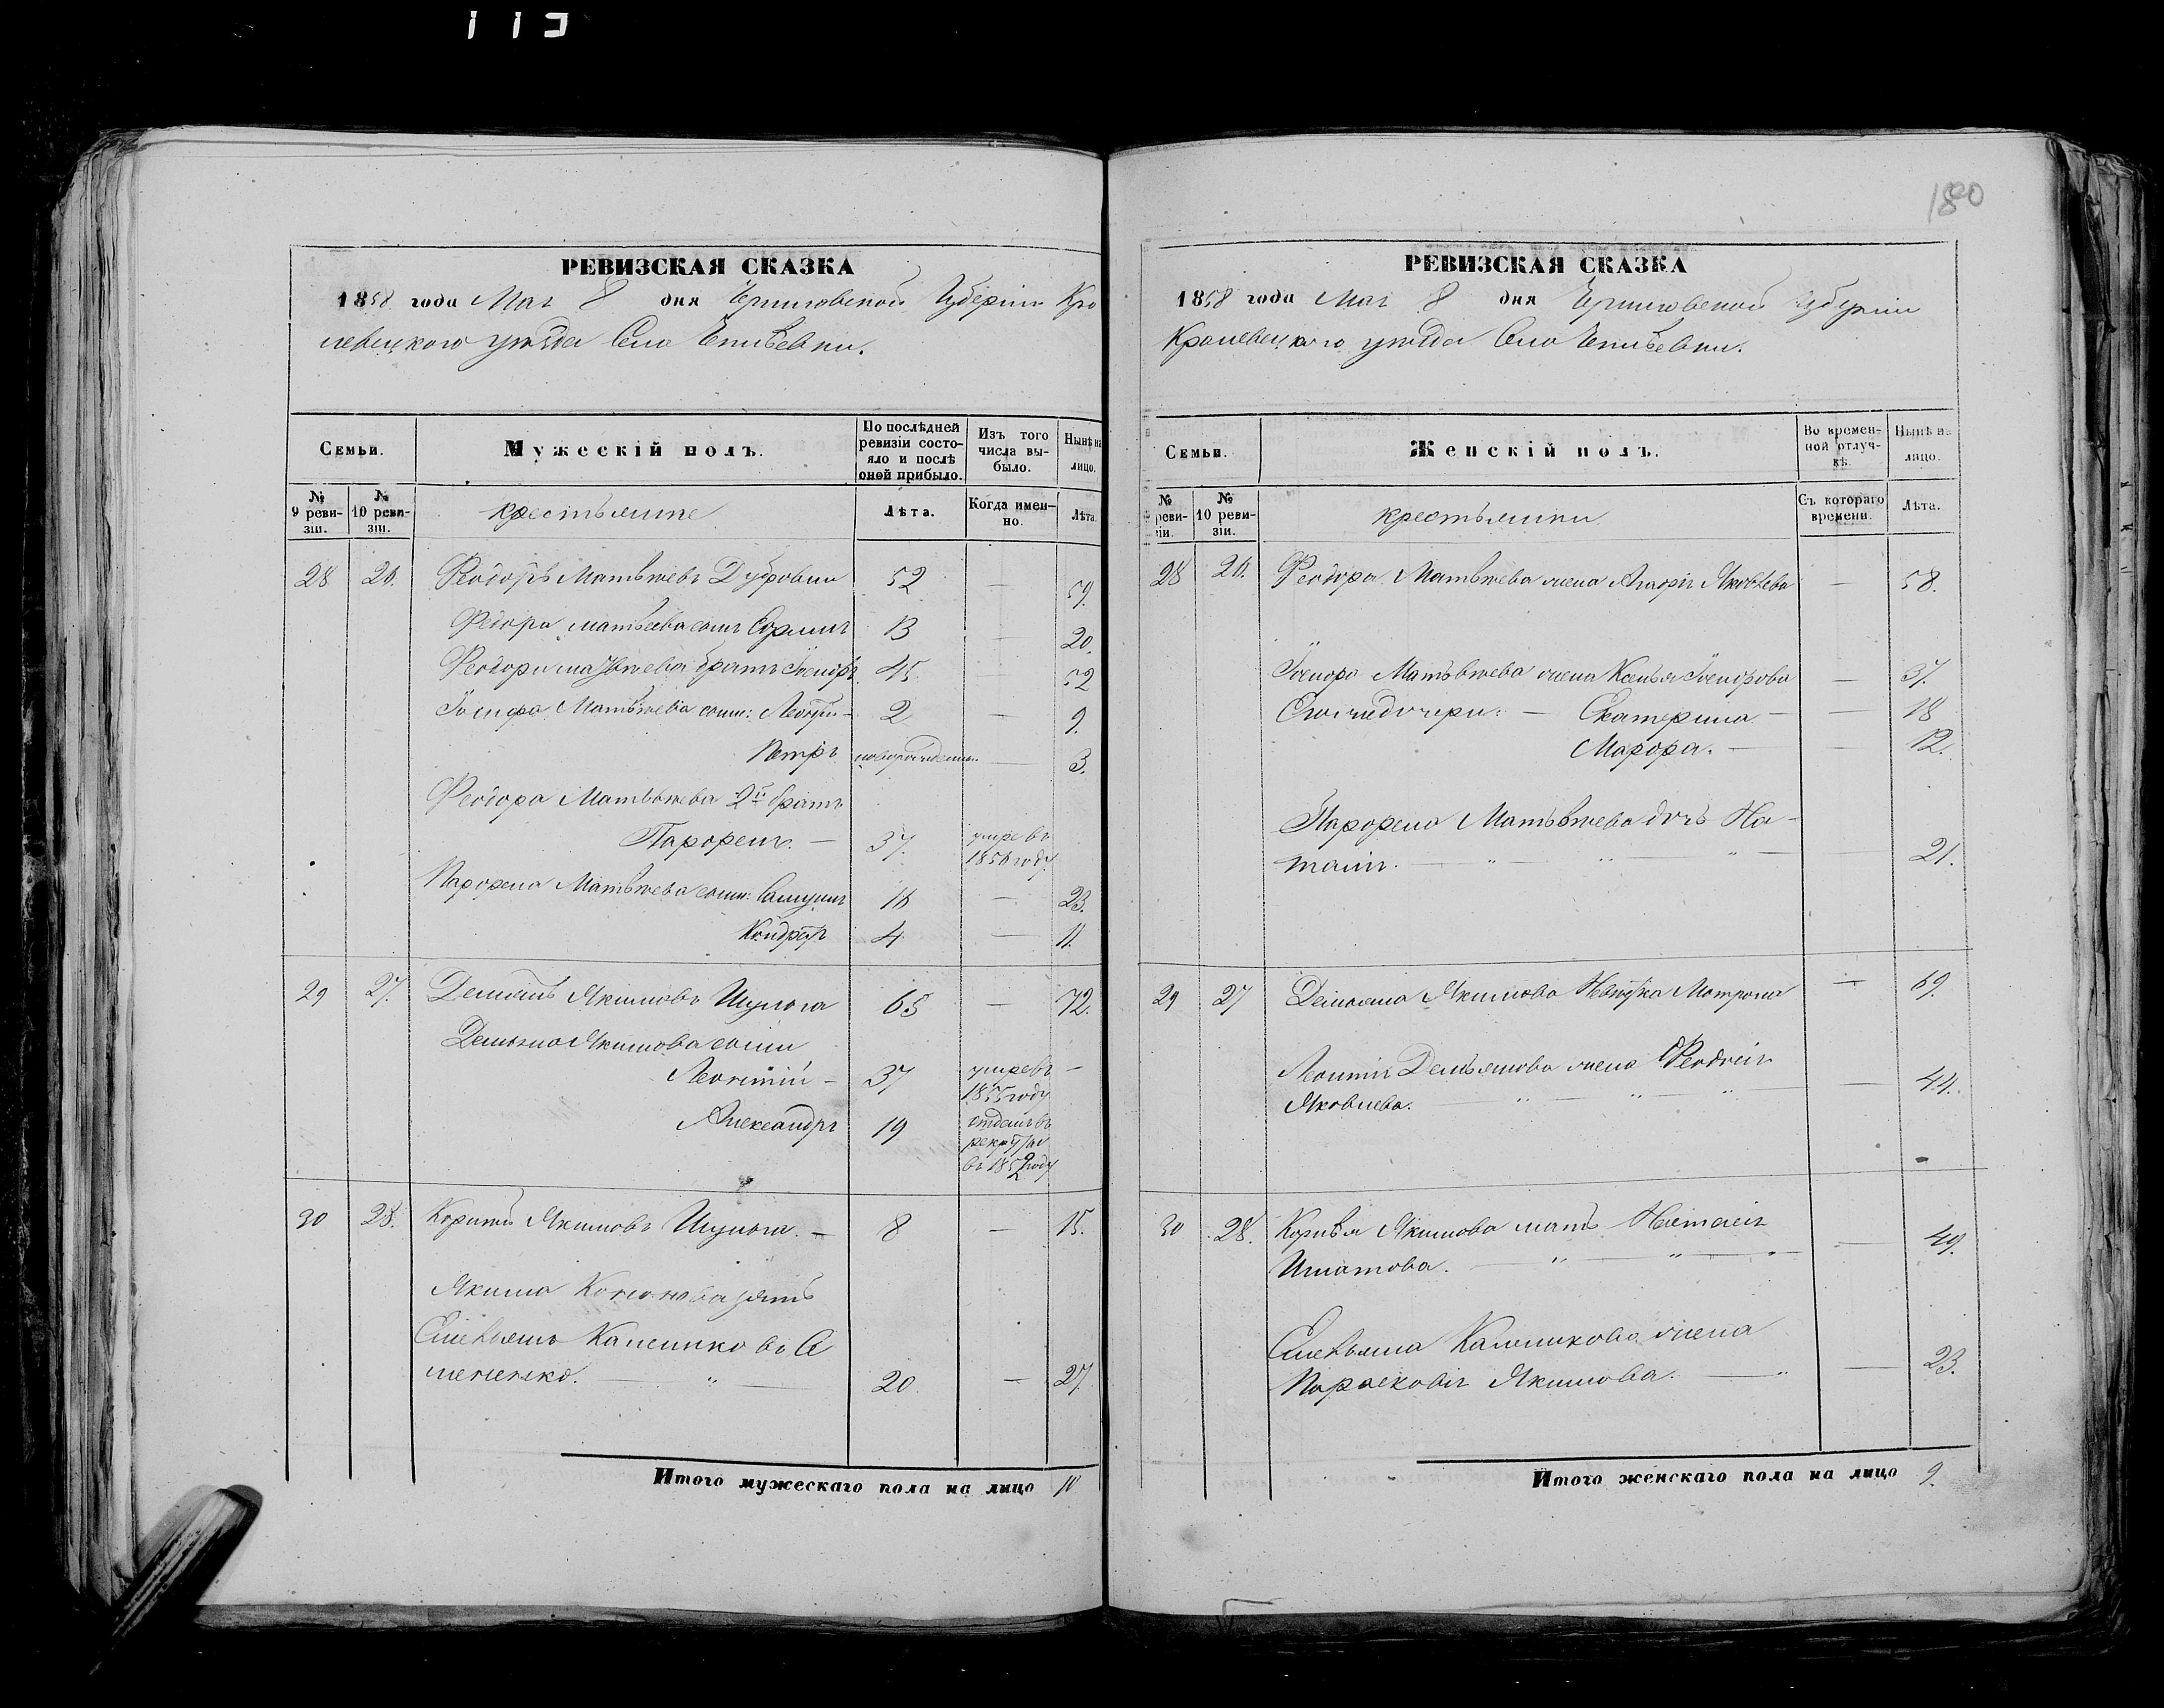 180
РЕВИЗСКАЯ СКАЗКА
1858 года Мая 8 дня Черниговской Губернии Кро
левецкого уѣзда Село
Семьи.
Мужескій полъ.
По послѣдней ревизіи состояло и послѣ оной прибыло.
Изъ того числа выбыло.
Нынѣ на лицо.
№ 9 ревизіи.
№ 10 ревизіи.
крестьяне
Лѣта.
Когда именно.
Лѣта.
28 26. Феодоръ Матвѣевъ 52 — 59.
Федора Матвеева сынъ 13 — 20.
Феодора Матвѣева братъ 45 — 52
Матвѣева сыны: 2 — 9.
Петръ новорожденъ — 3.
Феодора Матвѣева 2й братъ
Парфенъ. — 37. умре въ 1856 году.
Парфена Матвѣева сыны: Самуилъ 16 — 23.
Кондратъ 4 — 11.
29 27. Демьянъ Якимовъ Шульга 65 — 72.
Демьяна Якимова сыны
Леонтій — 37 умре въ 1855 году —
Александръ 19 отданъ въ рекруты въ 1852 году
30 28. Корнѣй Якимовъ Шульга. — 8 — 15.
Якима зять
Емельянъ
20 — 27.
Итого мужескаго пола на лицо 10
РЕВИЗСКАЯ СКАЗКА
1858 года Мая 8 дня Черниговской Губернии
Кролевецкого уѣзда Село
Семьи.
Женскій полъ.
Во временной отлучкѣ.
Нынѣ на лицо.
№ ревизіи.
№ 10 ревизіи.
крестьянки
Съ котораго времени.
Лѣта.
28 26. Феодора Матвѣева жена Агафія Яковлева — 58.
Матвѣева жена Ксенья — 37.
Его же дочери: — Екатерина — — 18
Марфа. — — 12.
Парфена Матвѣева дочь На-
талія. — " — " " — 21.
29 27 Демьяна Якимова Невѣстка Мотрона — 69.
Леонтія Демьянова жена Феодосія
Яковлева. — " — " — " — 44.
30 28. Корнѣя Якимова мать Настасія
Игнатова. — " — " — " — 49.
Емельяна жена
Парасковія Якимова. — " — 23.
Итого женскаго пола на лицо 9.